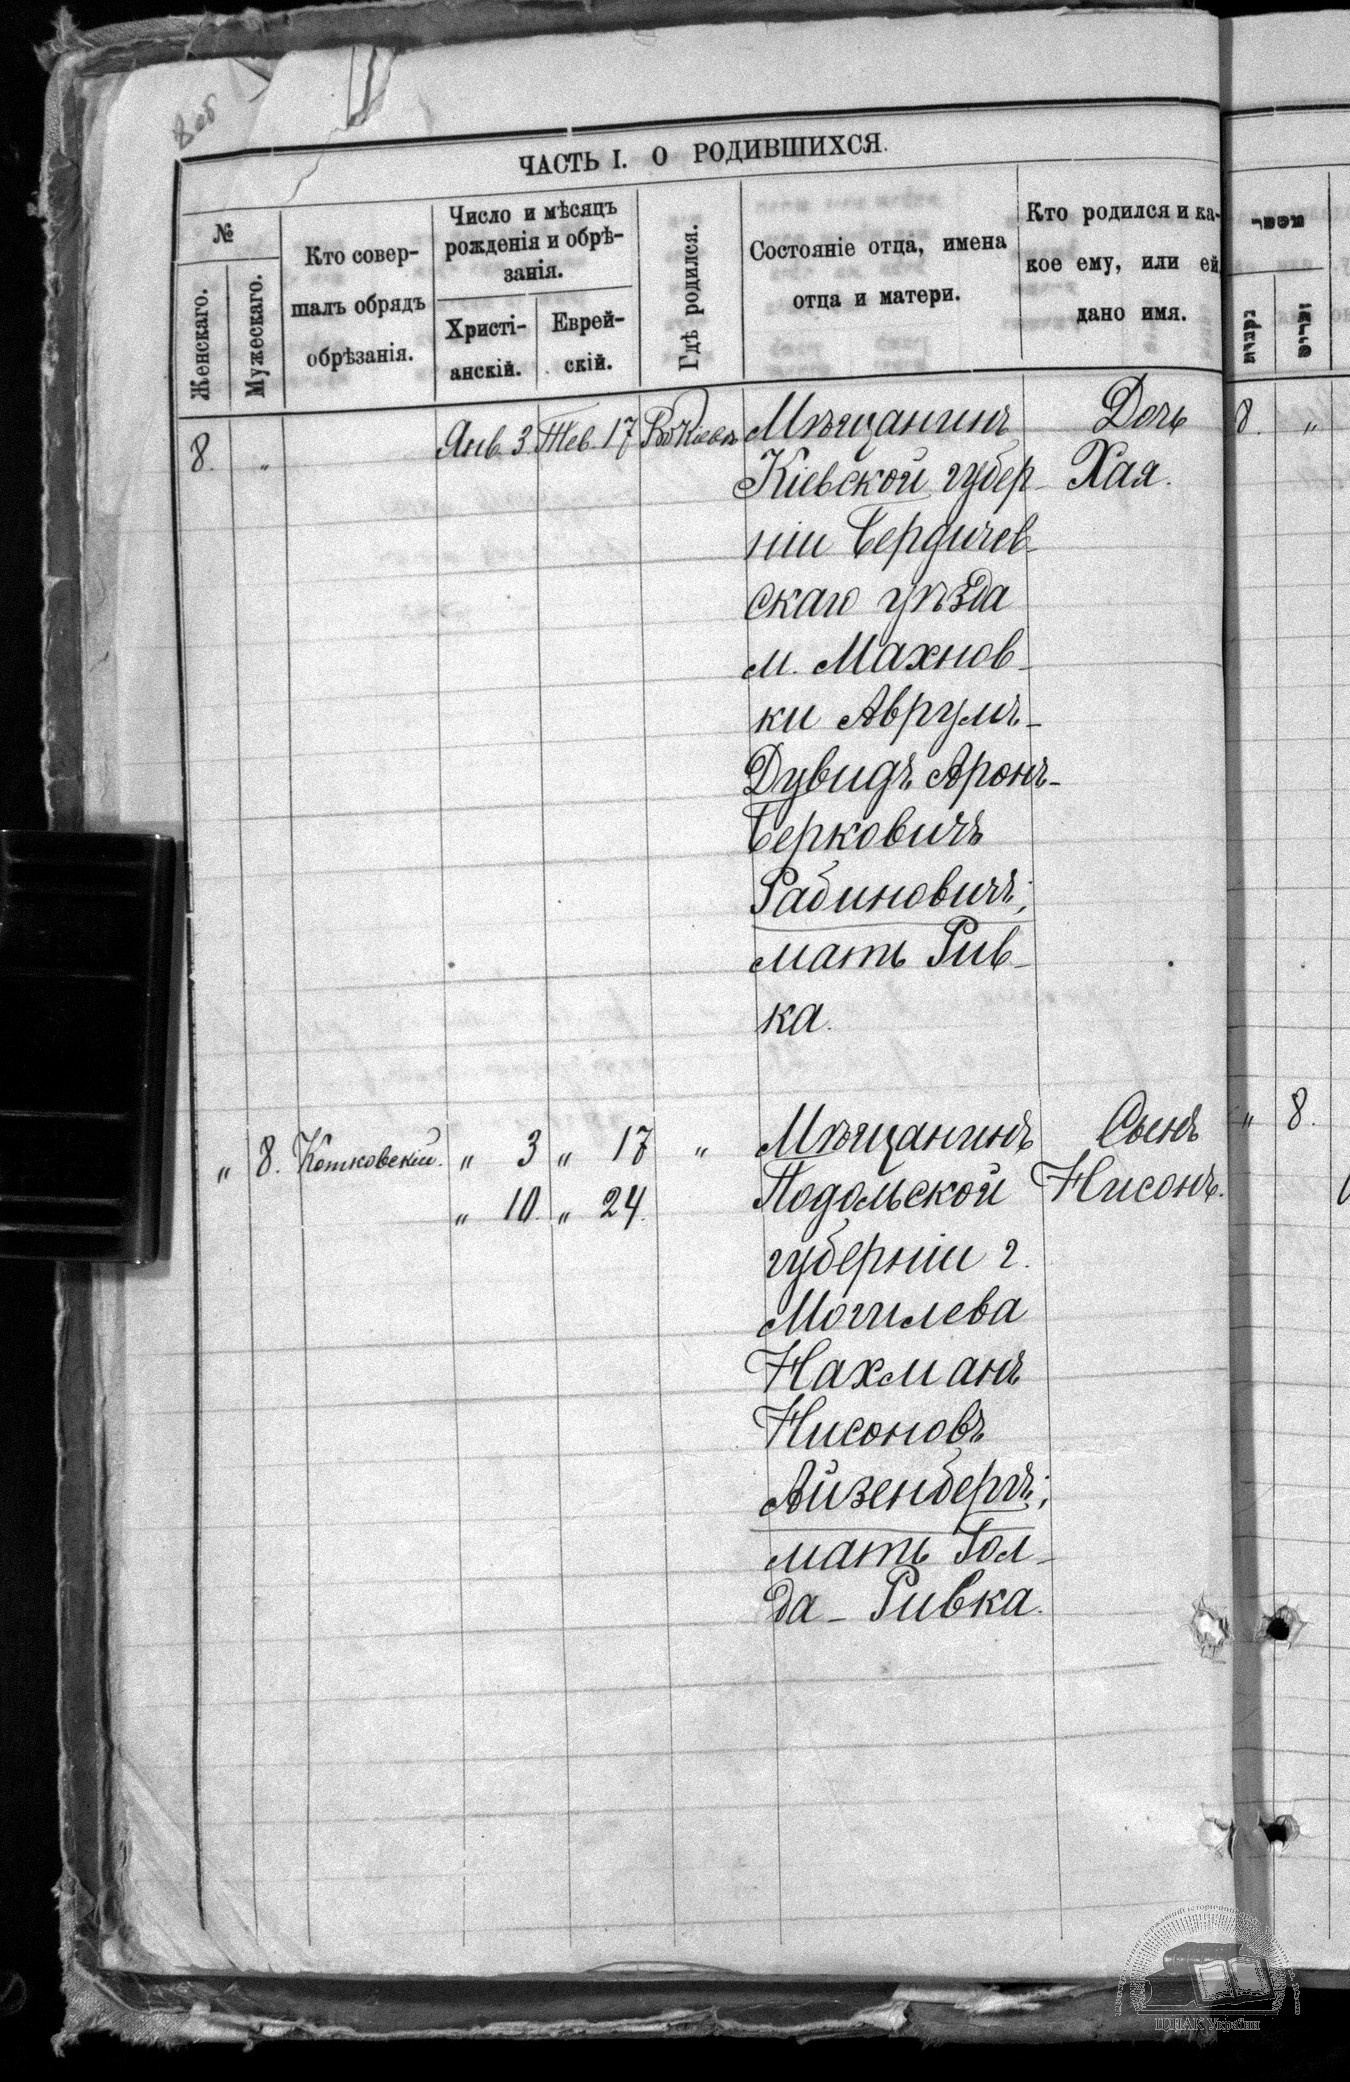 8 об
ЧАСТЬ I. О РОДИВШИХСЯ.
№
Женскаго.
Мужескаго.
Кто совер-
шалъ обрядъ
обрѣзанія.
Число и мѣсяцъ
рожденія и обрѣ-
занія.
Христі-
анскій.
Еврей-
скій.
Гдѣ родился.
Состояніе отца, имена
отца и матери.
Кто родился и ка-
кое ему, или ей
дано имя.
מספר
נקבות
זכרים
8. „ Янв. 3 Тев. 17 Въ Кіевѣ Мѣщанинъ Дочь 8. „
Кіевской губер- Хая.
ніи Бердичев-
скаго уѣзда
м. Махнов-
ки Аврумъ-
Дувидъ Аронъ-
Берковичъ
Рабиновичъ;
мать Рив-
ка.
„ 8. Котковскій. „ 3 „ 17 „ Мѣщанинъ Сынъ „ 8.
„ 10. „ 24. Подольской Нисонъ.
губерніи г.
Могилева
Нахманъ
Нисоновъ
Айзенбергъ;
мать Гол-
да-Ривка.
ЦДІАК України